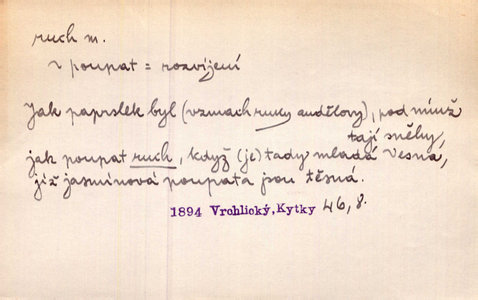 ruch m.
~ poupat = rozvíjení
Jak paprslek byl (vzmach ruky andělovy), pod nímž
tají sněhy,
jak poupat ruch, když (je) tady mladá Vesna,
jíž jasmínová poupata jsou těsná.
1894 Vrchlický, Kytky 46, 8.